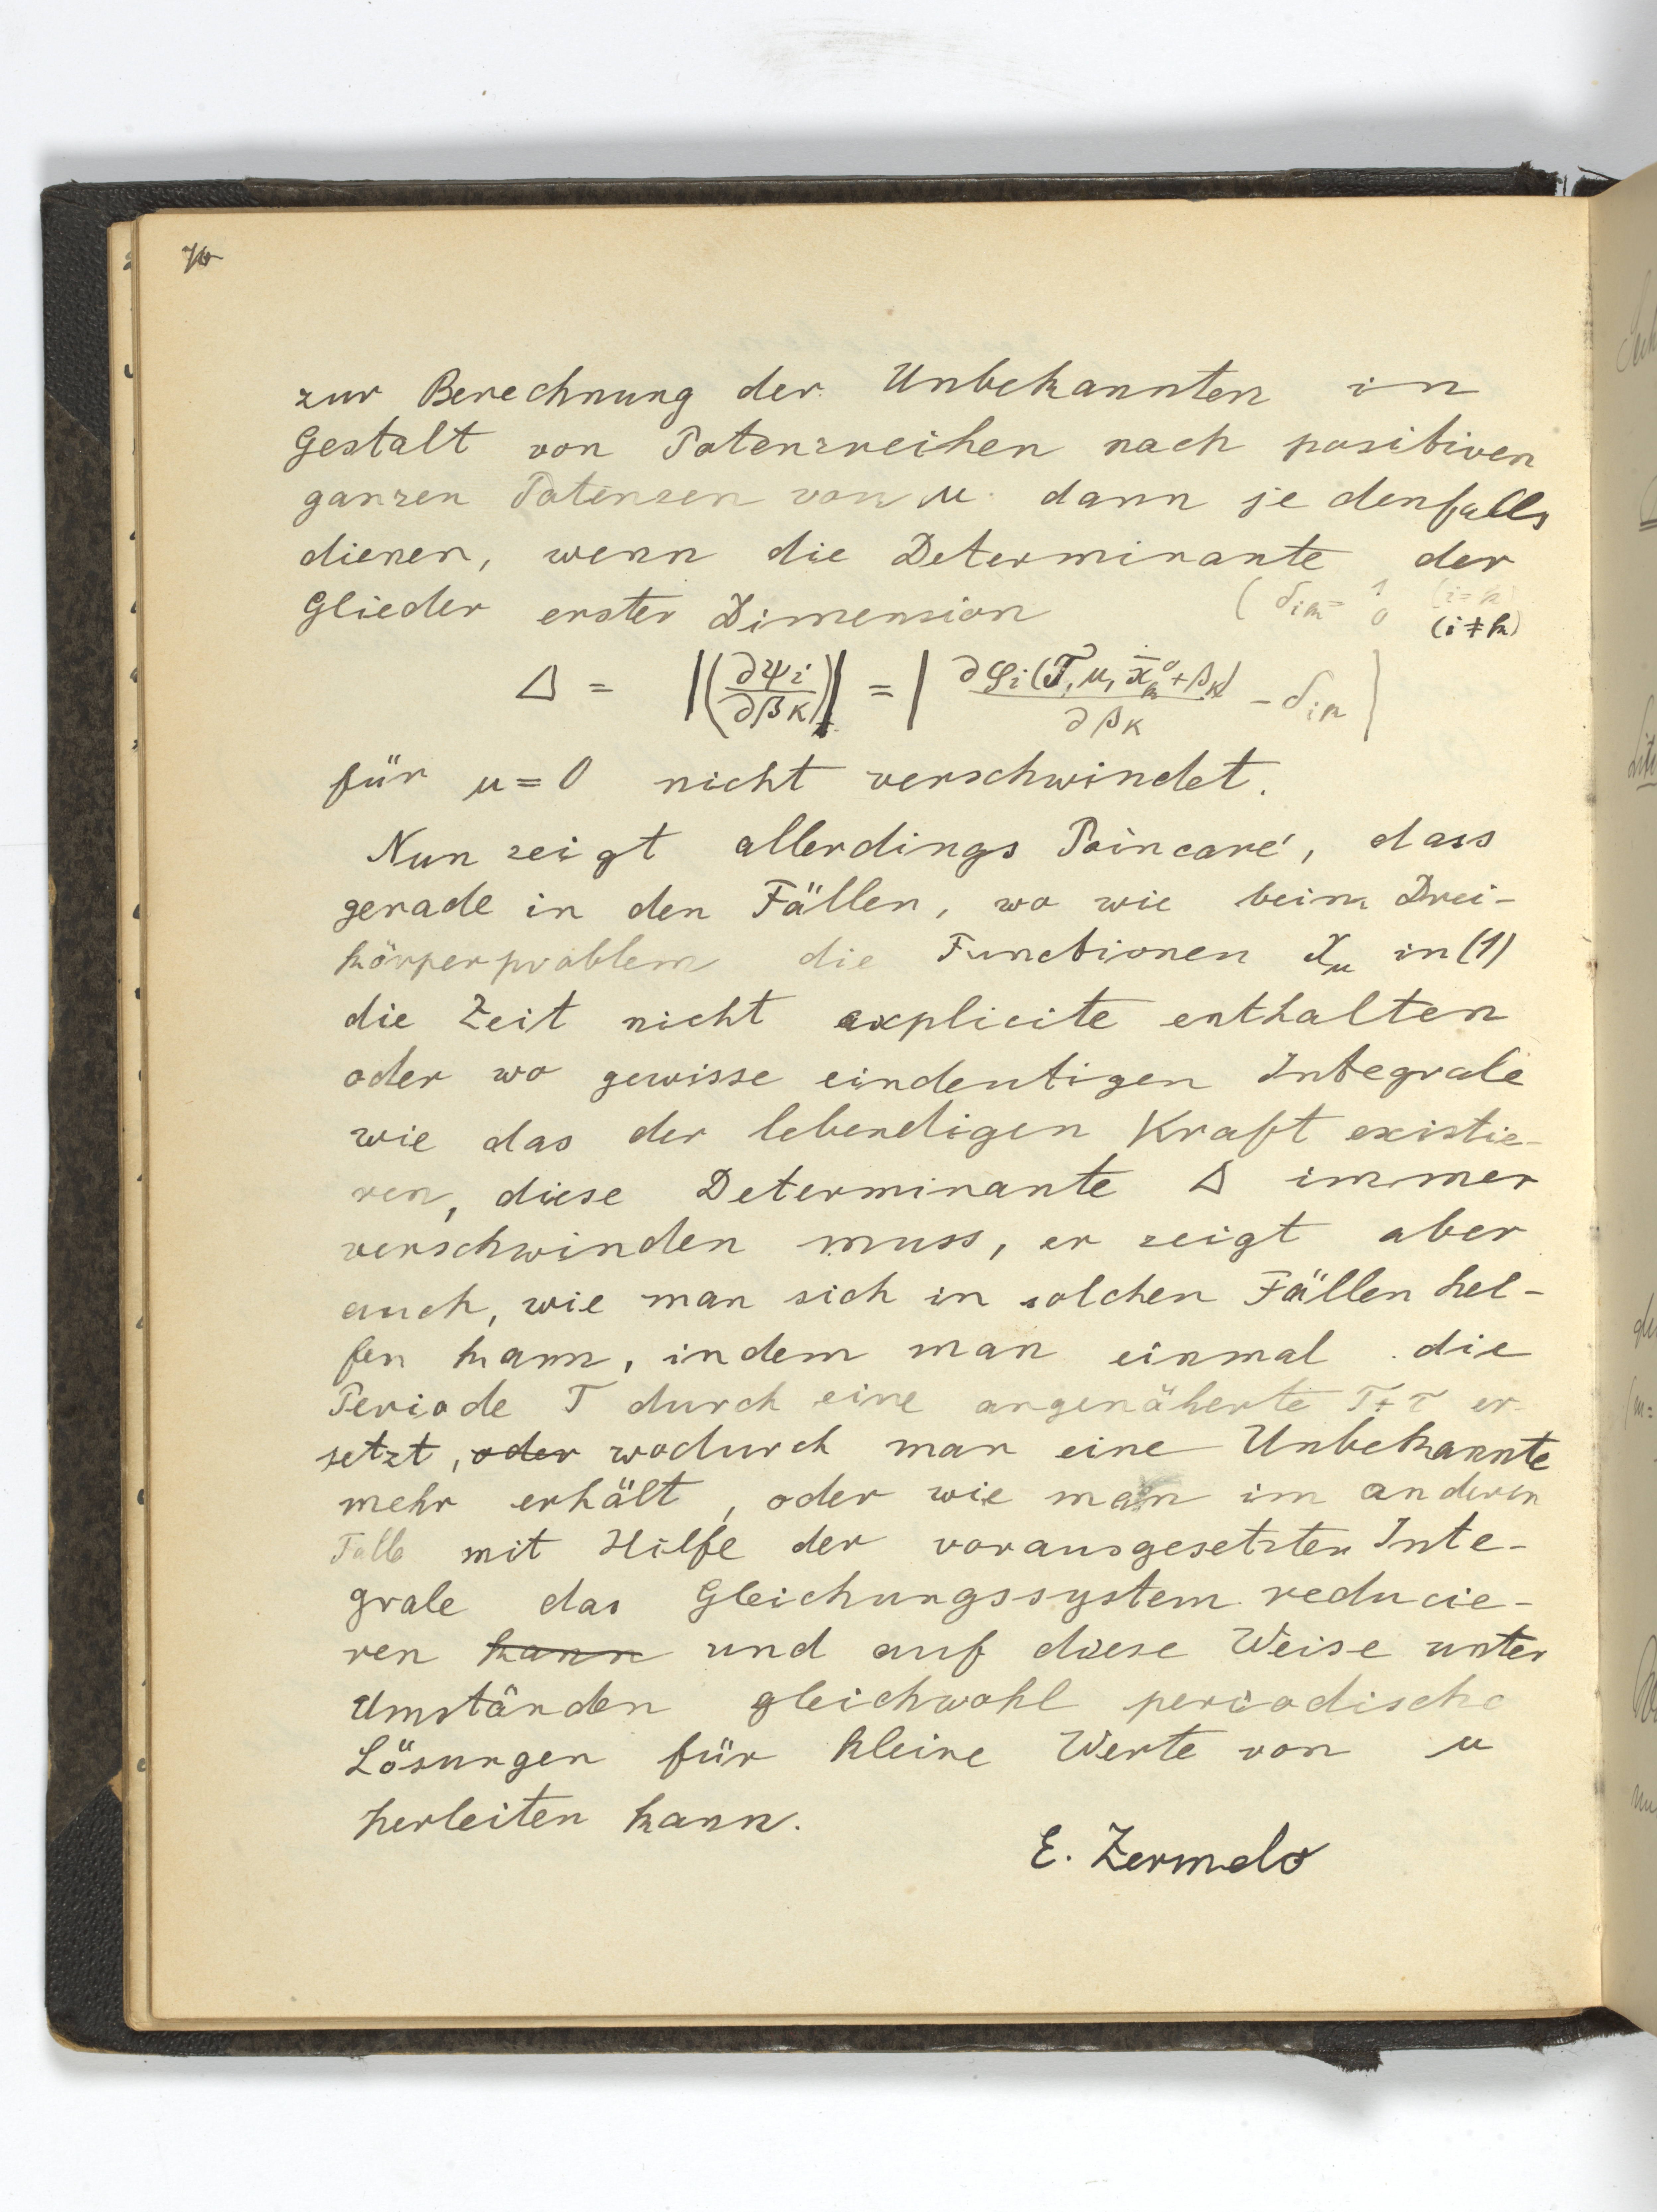 76
zur Berechnung der Unbekannten in
Gestalt von Potenzreihen nach positiven
ganzen Potenzen von μ dann jedenfalls
dienen, wenn die Determinante der
Glieder erster Dimension (δ_{ik} = 1 (i=k) 0 (i≠k))
Δ = |(∂ψi/∂βκ)| = | ∂φi(T, μ, x̄_k^0 + βκ)/∂βκ − δ_{ik} |
für μ = 0 nicht verschwindet.
Nun zeigt allerdings Poincaré, dass
gerade in den Fällen, wo wie beim Drei-
körperproblem die Functionen X_μ in (1)
die Zeit nicht explicite enthalten
oder wo gewisse eindeutigen Integrale
wie das der lebendigen Kraft existie-
ren, diese Determinante Δ immer
verschwinden muss, er zeigt aber
auch, wie man sich in solchen Fällen hel-
fen kann, indem man einmal die
Periode T durch eine angenäherte T+τ er-
setzt, oder wodurch man eine Unbekannte
mehr erhält, oder wie man im anderen
Falle mit Hilfe der vorausgesetzten Inte-
grale das Gleichungssystem reducie-
ren kann und auf diese Weise unter
Umständen gleichwohl periodische
Lösungen für kleine Werte von μ
herleiten kann.
E. Zermelo